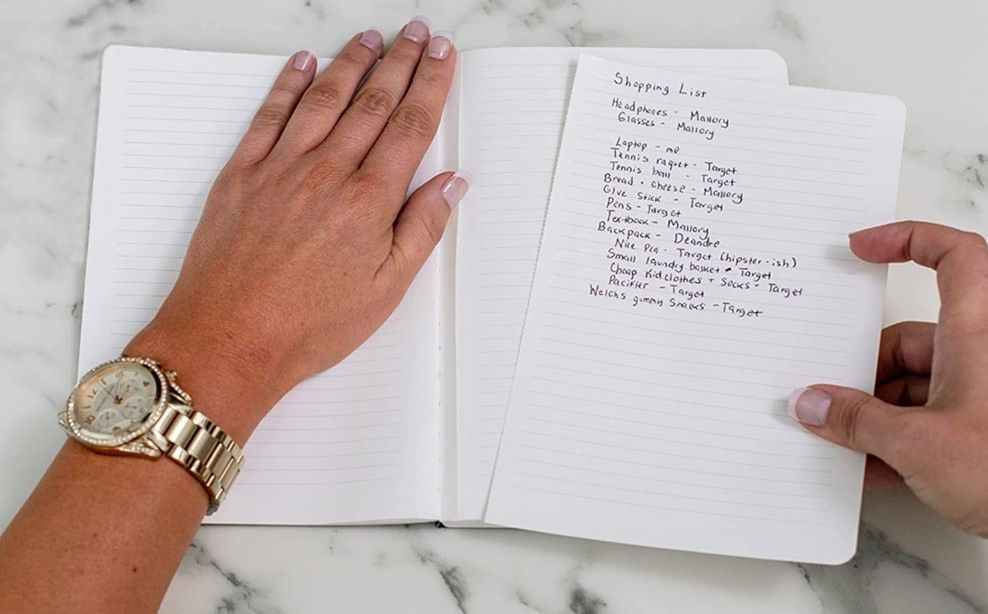 Shopping List
Headphones - Mallory
Glasses - Mallory
Laptop - me
Tennis raquet - Target
Tennis ball - Target
Bread + cheese - Mallory
Glue stick - Target
Pens - Target
Textbook - Mallory
Backpack - Deandre
Nice Pen - Target (hipster-ish)
Small laundry basket - Target
Cheap kid clothes + socks - Target
Pacifier - Target
Welchs gummy snacks - Target